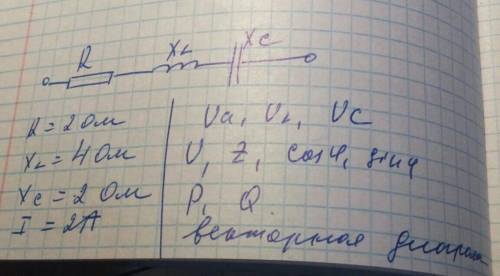 R XL XC
R = 2 Ом
XL = 4 Ом
XC = 2 Ом
I = 2А
Ua, UL, UC
U, Z, cosφ, sinφ
P, Q
векторная диаграм